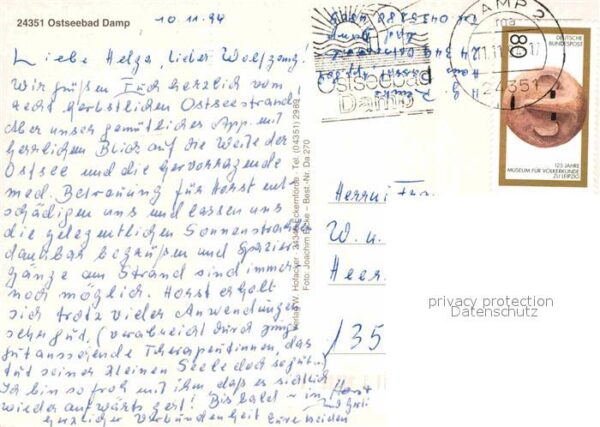 24351 Ostseebad Damp
10.11.94
Liebe Helga, lieber Wolfgang!
Wir grüßen Euch herzlich vom
recht herbstlichen Ostseestrand,
Aber unser gemütliches App. mit
herrlichem Blick auf die Weite der
Ostsee und die hervorragende
med. Betreuung für Horst ent-
schädigen uns und lassen uns
die gelegentlichen Sonnenstrahlen
dankbar begrüßen und Spazier-
gänge am Strand sind immer
noch möglich. Horst erholt
sich trotz vieler Anwendungen
sehr gut, (verabreicht durch junge
gut aussehende Therapeutinnen, das
tut seiner kleinen Seele doch so gut.)
Ich bin so froh mit ihm, daß es sichtlich
wieder aufwärts geht! Bis bald - in
herzlicher Verbundenheit Eure beiden
Horst
und
Verlag W. Hofacker · Eckernförde · Tel. (04351) 2989
Foto Joachim · Best.-Nr. Da 270
Ostseebad
Damp
DAMP 2
11.11
24351
80
DEUTSCHE
BUNDESPOST
125 JAHRE
MUSEUM FÜR VÖLKERKUNDE
ZU LEIPZIG
Herrn/
W. u.
Heer
135
privacy protection
Datenschutz